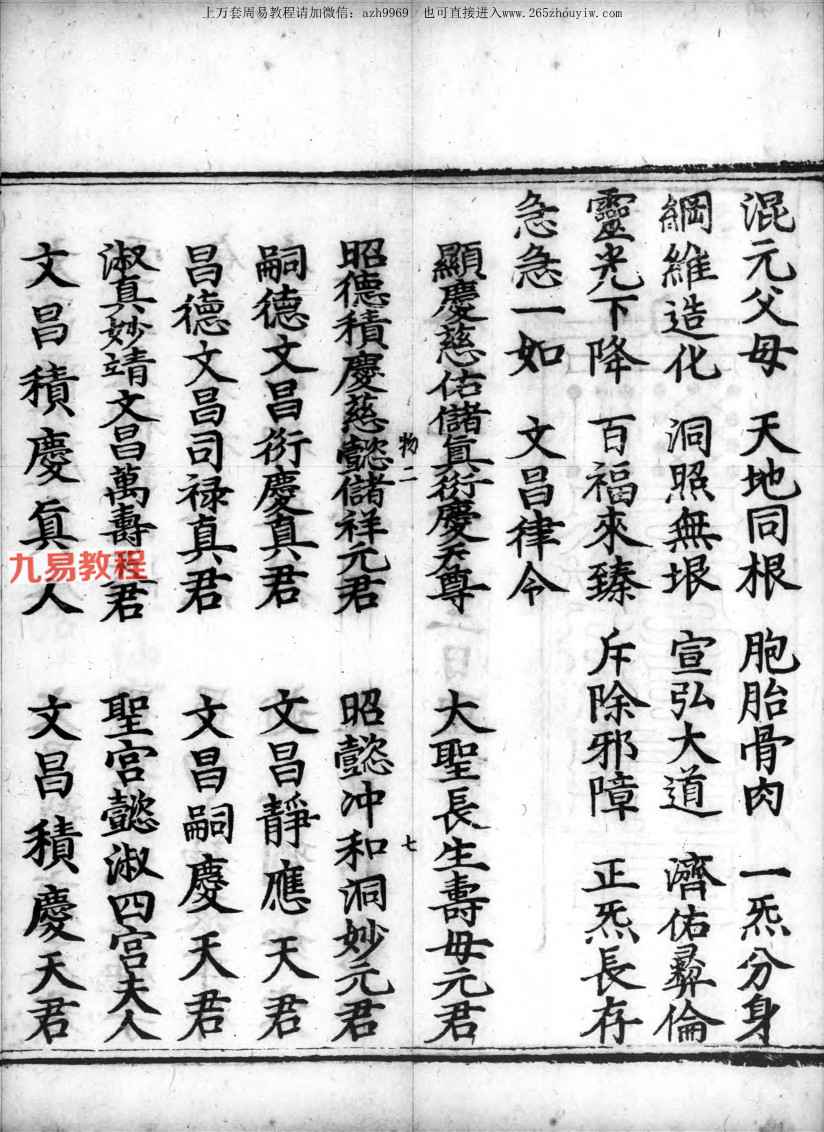 上万套周易教程请加微信：azh9969 也可直接进入www.265zhouyiw.com
混元父母 天地同根 胞胎骨肉 一炁分身
綱維造化 洞照無垠 宣弘大道 濟佑彛倫
靈光下降 百福來臻 斥除邪障 正炁長存
急急一如 文昌律令
顯慶慈佑儲眞衍慶天尊 大聖長生壽母元君
物二 七
昭德積慶慈懿儲祥元君 昭懿冲和洞妙元君
嗣德文昌衍慶真君 文昌靜應天君
昌德文昌司禄真君 文昌嗣慶天君
淑真妙靖文昌萬壽君 聖宫懿淑四宫夫人
文昌積慶眞人 文昌積慶天君
九易教程